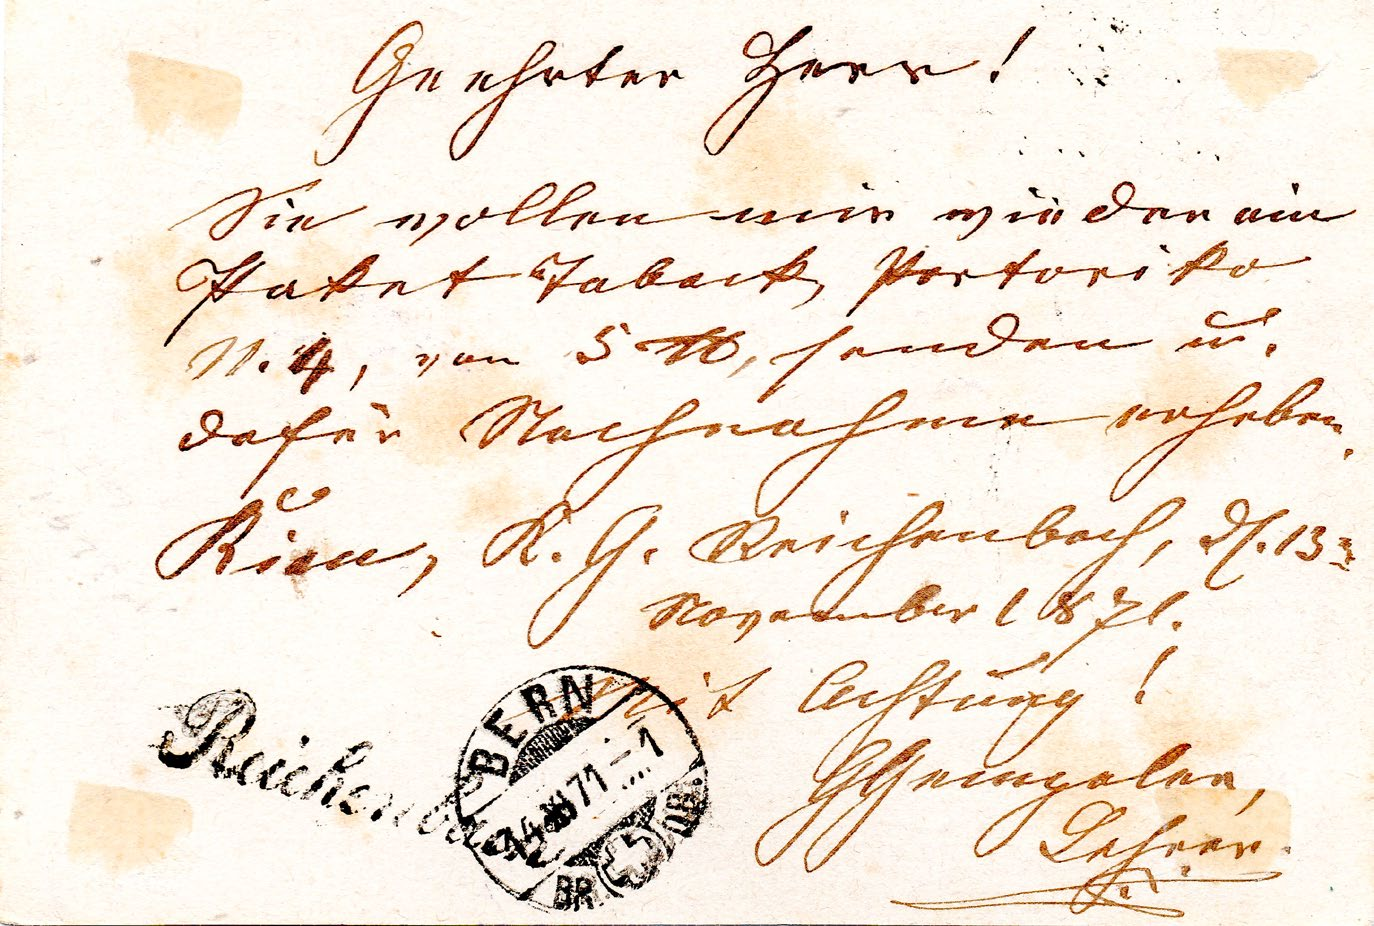 Geehrter Herr!
Sie wollen mir wieder ein
Paket Taback, Portoriko
N. 4, von 5 ℔, senden u.
dafür Nachnahme erheben.
Kien, K. G. Reichenbach, d. 13.
November 1871.
Mit Achtung!
Lehrer.
Reichenbach
BERN
14 XI 71
BR.